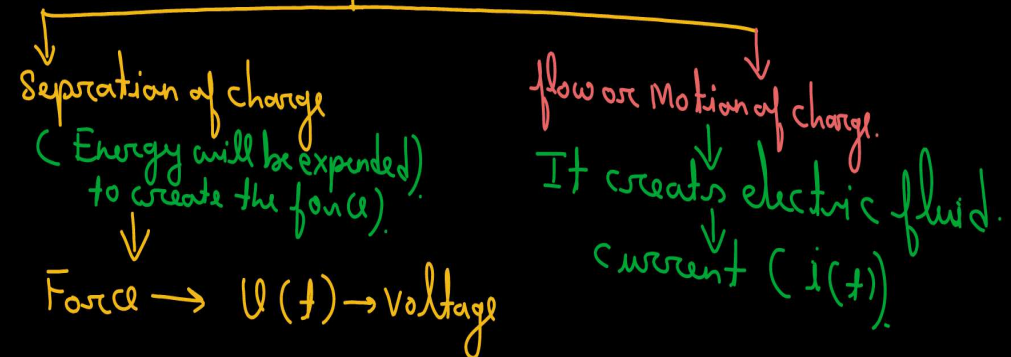 Sepration of charge
(Energy will be expended)
to create the force).
Force → v(t) → Voltage
flow or Motion of charge.
It creats electric fluid.
current (i(t)).